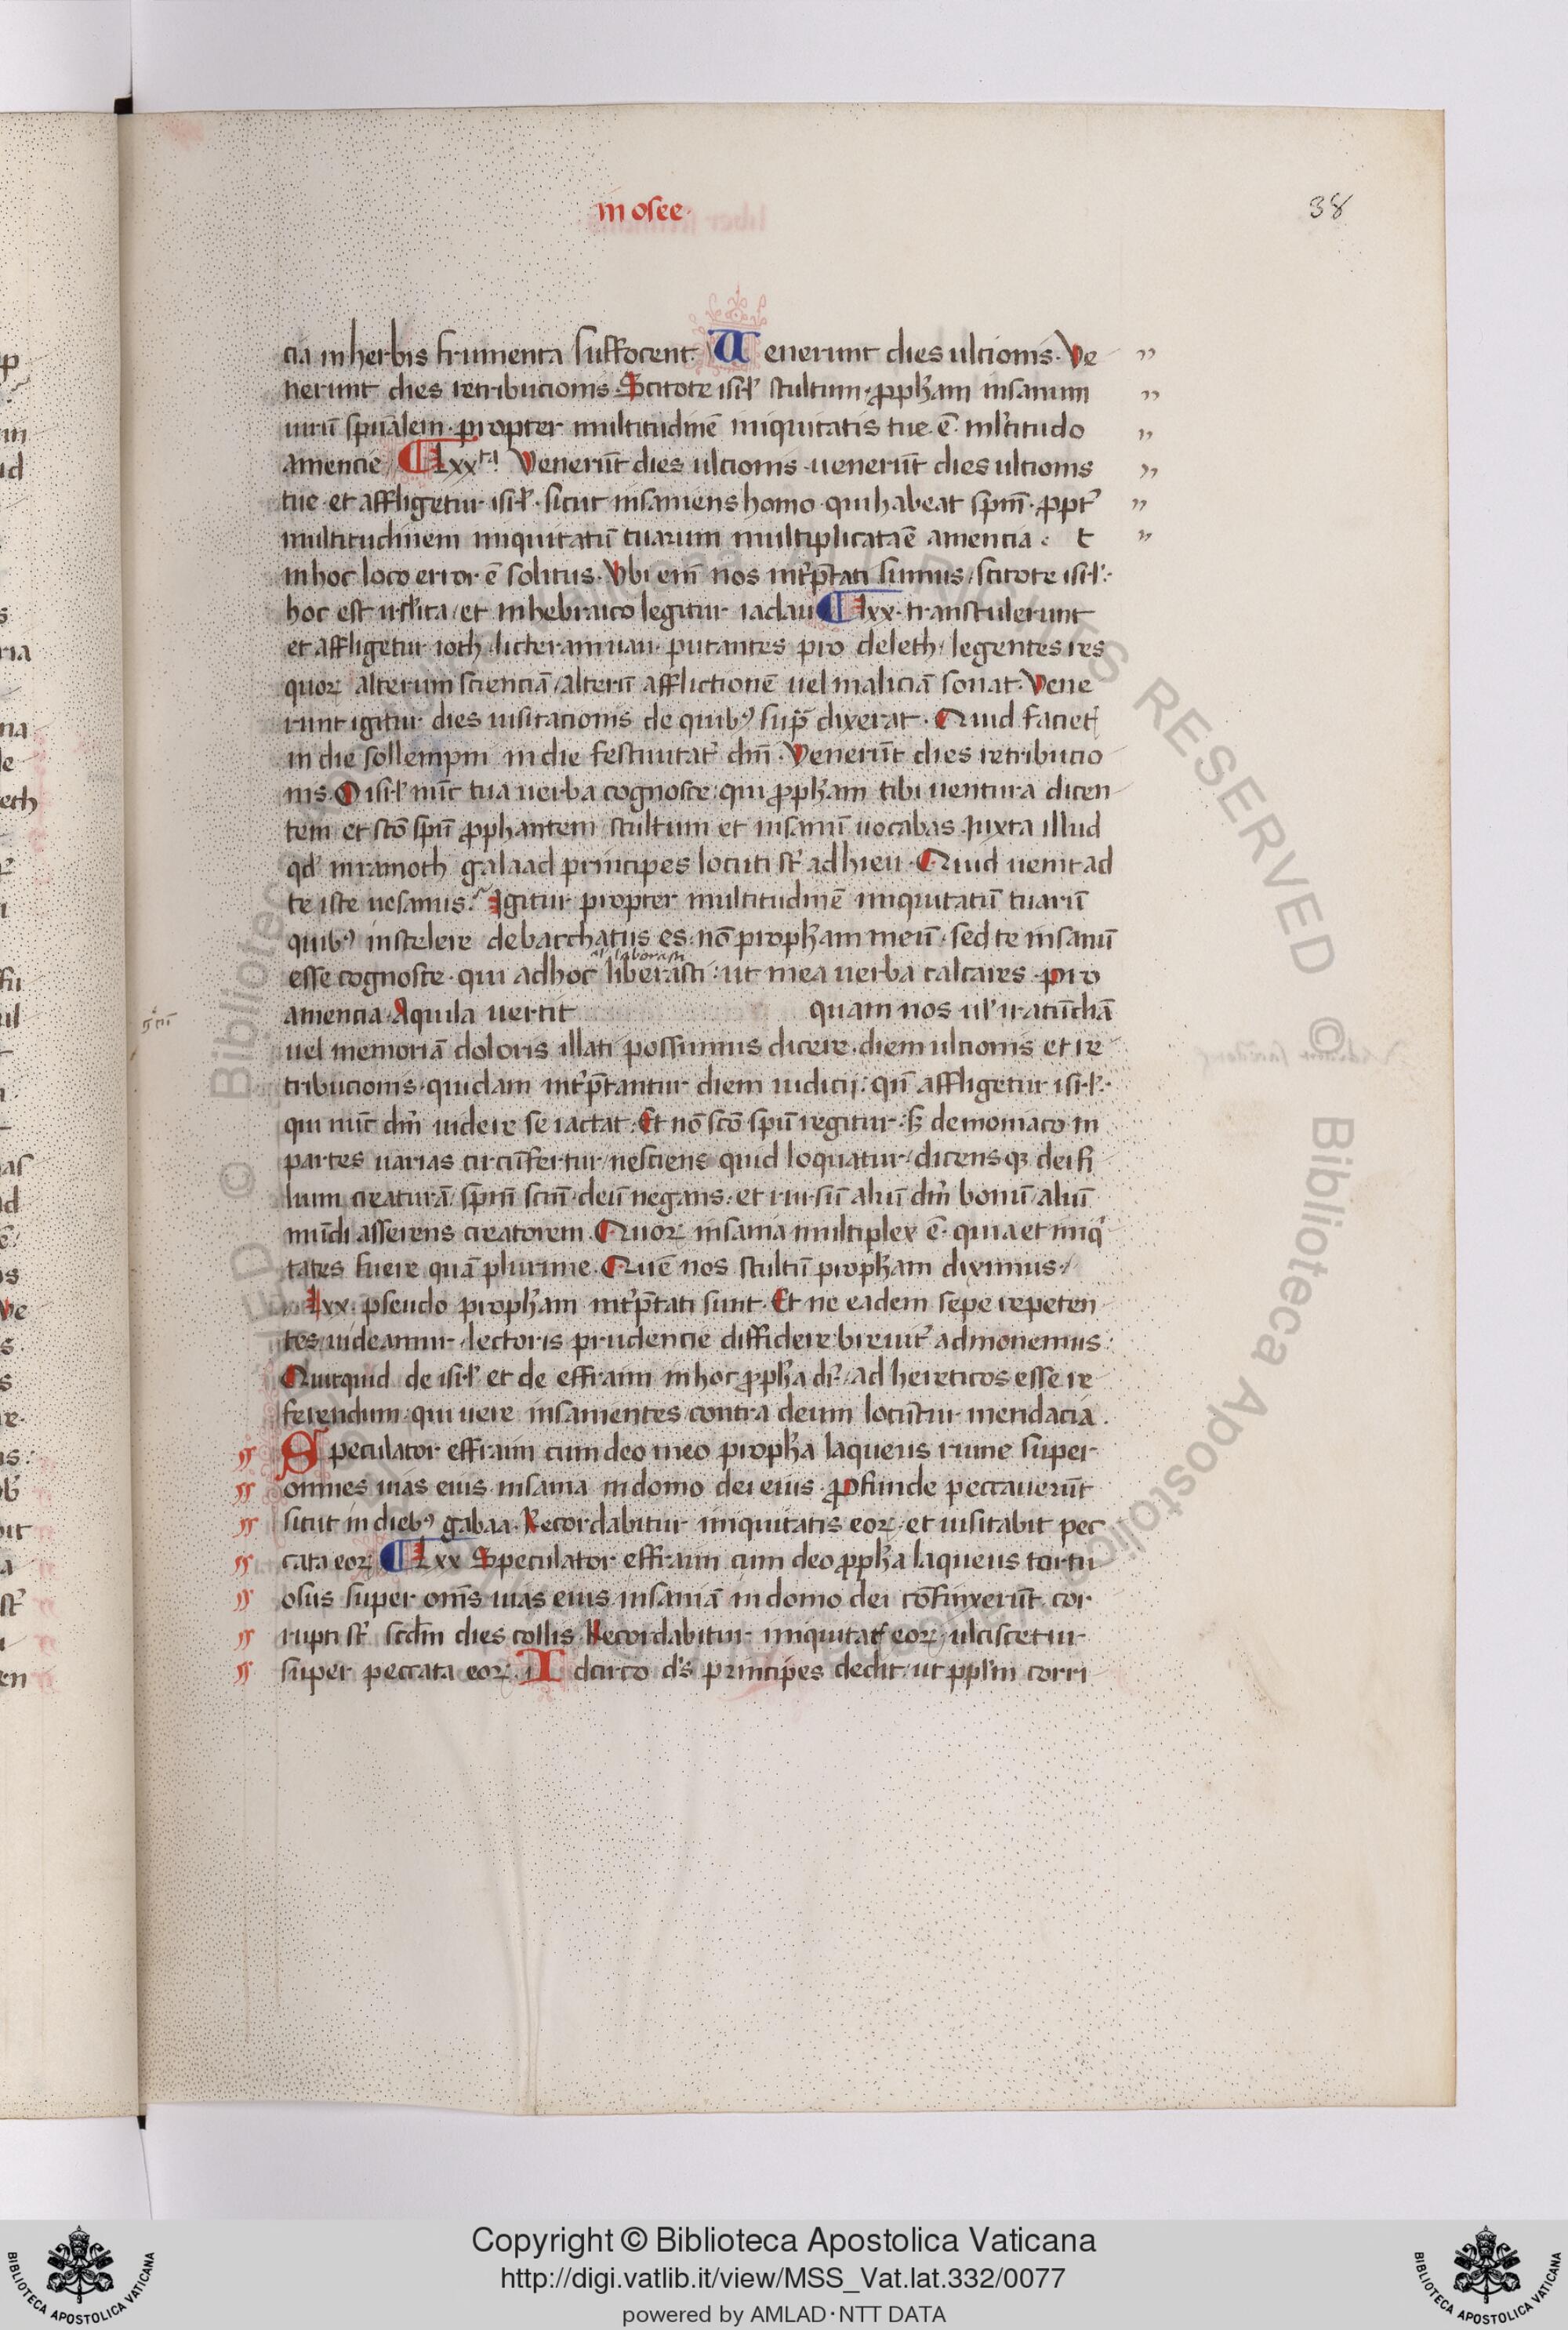 in osee·
38
cia in herbis frumenta suffocent. Uenerunt dies ulcionis. Ve
nerunt dies retribucionis. Scitote isrl' stultum ꝓph̄am insanum
uirū sp̄ualem. propter multitudinē iniquitatis tue. ē ml'titudo
amencie. Lxxta! Venerūt dies ulcionis uenerūt dies ulcionis
tue et affligetur isrl'. sicut insaniens homo qui habeat sp̄m̄. ꝓpt'
multitudinem iniquitatū tuarum multiplicata ē amencia. t
in hoc loco error ē solitus. Vbi em̄ nos int'p̄tati sumus scitote isrl'.
hoc est isrl'ita et in hebraico legitur iadau Lxx. transtulerunt
et affligetur ioth licteram uau putantes pro deleth legentes res
quoꝝ alterum scienciā alterū afflictionē uel maliciā sonat. Vene
runt igitur dies uisitacionis de quibꝰ sup̄ dixerat. Quid faciet
in die sollempni in die festiuitat' dn̄i. Venerūt dies retribucio
nis. O isrl' nūc tua uerba cognosce qui ꝓph̄am tibi uentura dicen
tem et sc̄o sp̄u ꝓphantem stultum et insanū uocabas. Juxta illud
qd' in ramoth galaad principes locuti st' ad hieu. Quid uenit ad
te iste uesanus? Igitur propter multitudinē iniquitatū tuarū
quibꝰ in scelere debacchatus es. nō proph̄am meū. sed te insanū
al' laborasti
esse cognosce. qui ad hoc liberasti: ut mea uerba calcares. pro
amencia. Aquila uertit quam nos ul' iracūc̄hā
uel memoriā doloris illati possumus dicere. diem ulcionis et re
tribucionis quidam int'p̄tantur diem iudicij: qn̄ affligetur isrl'.
qui nūc dm̄ uidere se iactat. Et nō sc̄o sp̄u regitur. sꝫ demoniaco in
partes uarias circūfertur nesciens quid loquatur dicensqꝫ dei fi
lium creaturā sp̄m̄ sc̄m̄ deū negans. et rursū aliū dm̄ bonū aliū
mūdi asserens creatorem. Quoꝝ insania multiplex ē. quia et iniq'
tates fuere quā plurime. Quē nos stultū proph̄am diximus.
Lxx. pseudo proph̄am int'p̄tati sunt. Et ne eadem sepe repeten
tes uideamur lectoris prudencie diffidere breuit' admonemus:
Quicquid de isrl' et de effraim in hoc ꝓph̄a dr̄. ad hereticos esse re
ferendum. qui uere insanientes contra deum locūtur mendacia.
Speculator effraim cum deo meo proph̄a laqueus ruine super
omnes uias eius insania in domo dei eius. ꝓfunde peccauerūt
sicut in diebꝰ gabaa. Recordabitur iniquitatis eoꝝ et uisitabit pec
cata eoꝝ Lxx Speculator effraim cum deo ꝓph̄a laqueus tortu
osus super om̄s uias eius insaniā in domo dei cōfinxerūt cor
rupti st' scd̄m dies collis. Recordabitur iniquitat' eoꝝ ulciscetur
super peccata eoꝝ. Idcirco d's principes dedit ut ppl'm corri
Copyright © Biblioteca Apostolica Vaticana
http://digi.vatlib.it/view/MSS_Vat.lat.332/0077
powered by AMLAD·NTT DATA